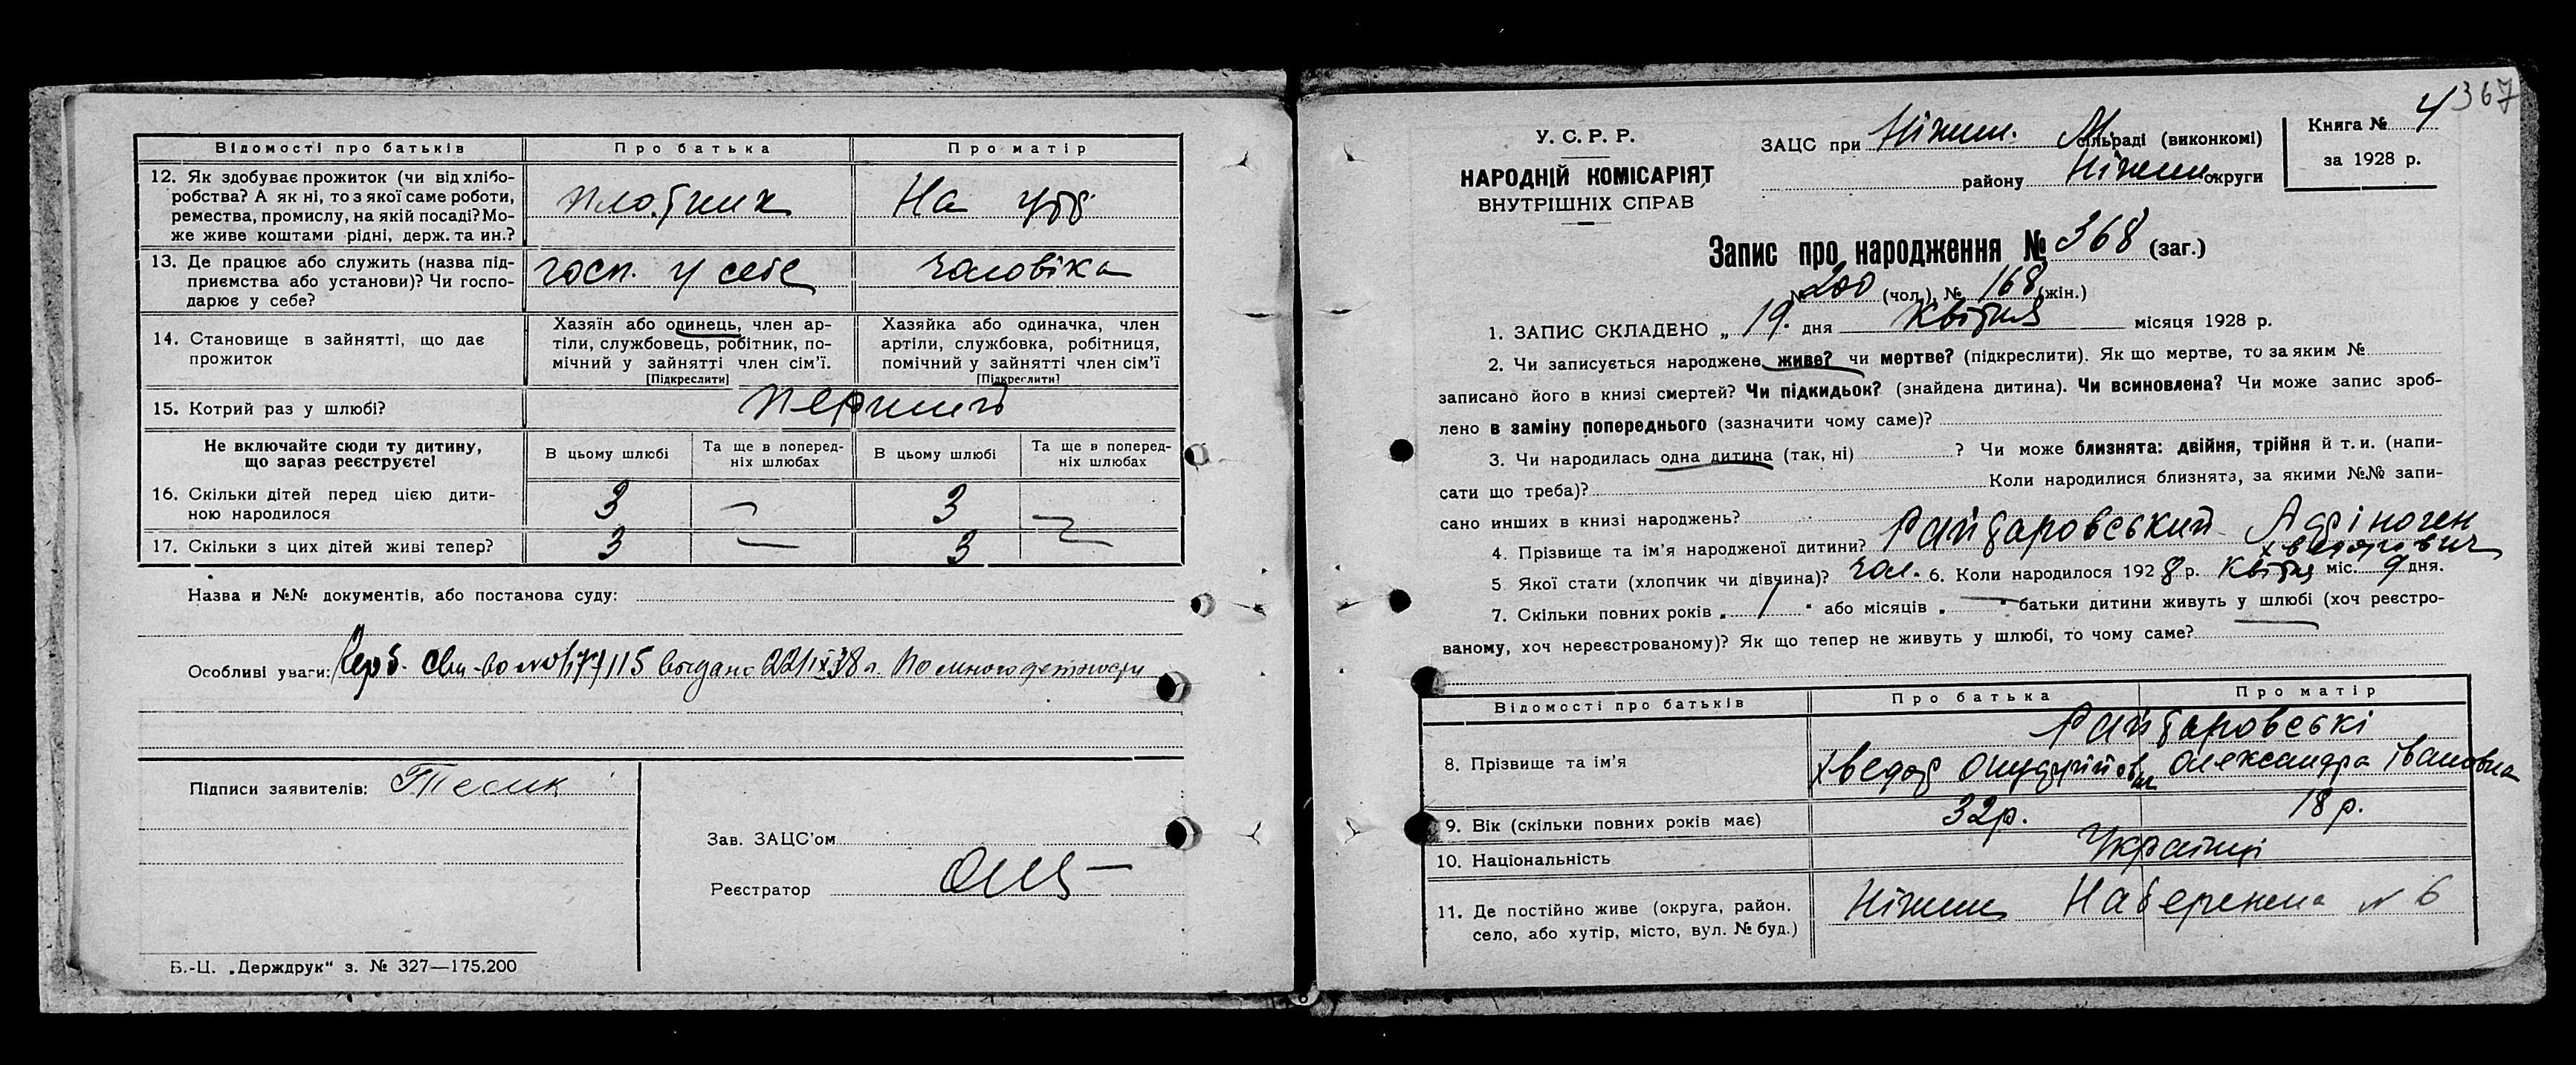 Відомості про батьків
Про батька
Про матір
12. Як здобуває прожиток (чи від хлібо-
робства? А як ні, то з якої саме роботи,
ремества, промислу, на якій посаді? Мо-
же живе коштами рідні, держ. та ин.?
плотник
На утр
13. Де працює або служить (назва під-
приємства або установи)? Чи госпо-
дарює у себе?
госп. у себе
чоловіка
14. Становище в зайнятті, що дає
прожиток
Хазяїн або одинець, член ар-
тіли, службовець, робітник, по-
мічний у зайнятті член сім'ї.
[Підкреслити]
Хазяйка або одиначка, член
артіли, службовка, робітниця,
помічний у зайнятті член сім'ї
[Підкреслити]
15. Котрий раз у шлюбі?
перший
Не включайте сюди ту дитину,
що зараз реєструєте!
В цьому шлюбі
Та ще в поперед-
ніх шлюбах
В цьому шлюбі
Та ще в поперед-
ніх шлюбах
16. Скільки дітей перед цією дити-
ною народилося
3 — 3 —
17. Скільки з цих дітей живі тепер?
3 — 3 —
Назва и №№ документів, або постанова суду:
Особливі уваги: выдано 22/IX 38 г. По многодетности
Підписи заявителів:
Зав. ЗАЦС'ом
Реєстратор
Б.-Ц. „Держдрук“ з. № 327—175.200
367
У. С. Р. Р.
НАРОДНІЙ КОМІСАРІЯТ
ВНУТРІШНІХ СПРАВ
ЗАЦС при Ніжин. М. сільраді (виконкомі)
району Ніжин. округи
Книга № 4
за 1928 р.
Запис про народження № 368 (заг.)
№ 200 (чол.), № 168 (жін.)
1. ЗАПИС СКЛАДЕНО „ 19. дня Квітня місяця 1928 р.
2. Чи записується народжене живе? чи мертве? (підкреслити). Як що мертве, то за яким №
записано його в книзі смертей? Чи підкидьок? (знайдена дитина). Чи всиновлена? Чи може запис зроб-
лено в заміну попереднього (зазначити чому саме)?
3. Чи народилась одна дитина (так, ні) ? Чи може близнята: двійня, трійня й т. и. (напи-
сати що треба)? Коли народилися близнята, за якими №№ запи-
сано инших в книзі народжень?
4. Прізвище та ім'я народженої дитини? Райдаровський Афіноген
Хведорович
5 Якої стати (хлопчик чи дівчина)? чол. 6. Коли народилося 1928 р. Квітня міс. 9 дня.
7. Скільки повних років „ 7 “ або місяців „ — “ батьки дитини живуть у шлюбі (хоч реєстро-
ваному, хоч нереєстрованому)? Як що тепер не живуть у шлюбі, то чому саме?
Відомості про батьків
Про батька
Про матір
8. Прізвище та ім'я
Райдаровські
Хведор Онуфрійович
Олександра Івановна
9. Вік (скільки повних років має)
32р.
18 р.
10. Національність
Українці
11. Де постійно живе (округа, район.
село, або хутір, місто, вул. № буд.)
Ніжин Набережна № 6